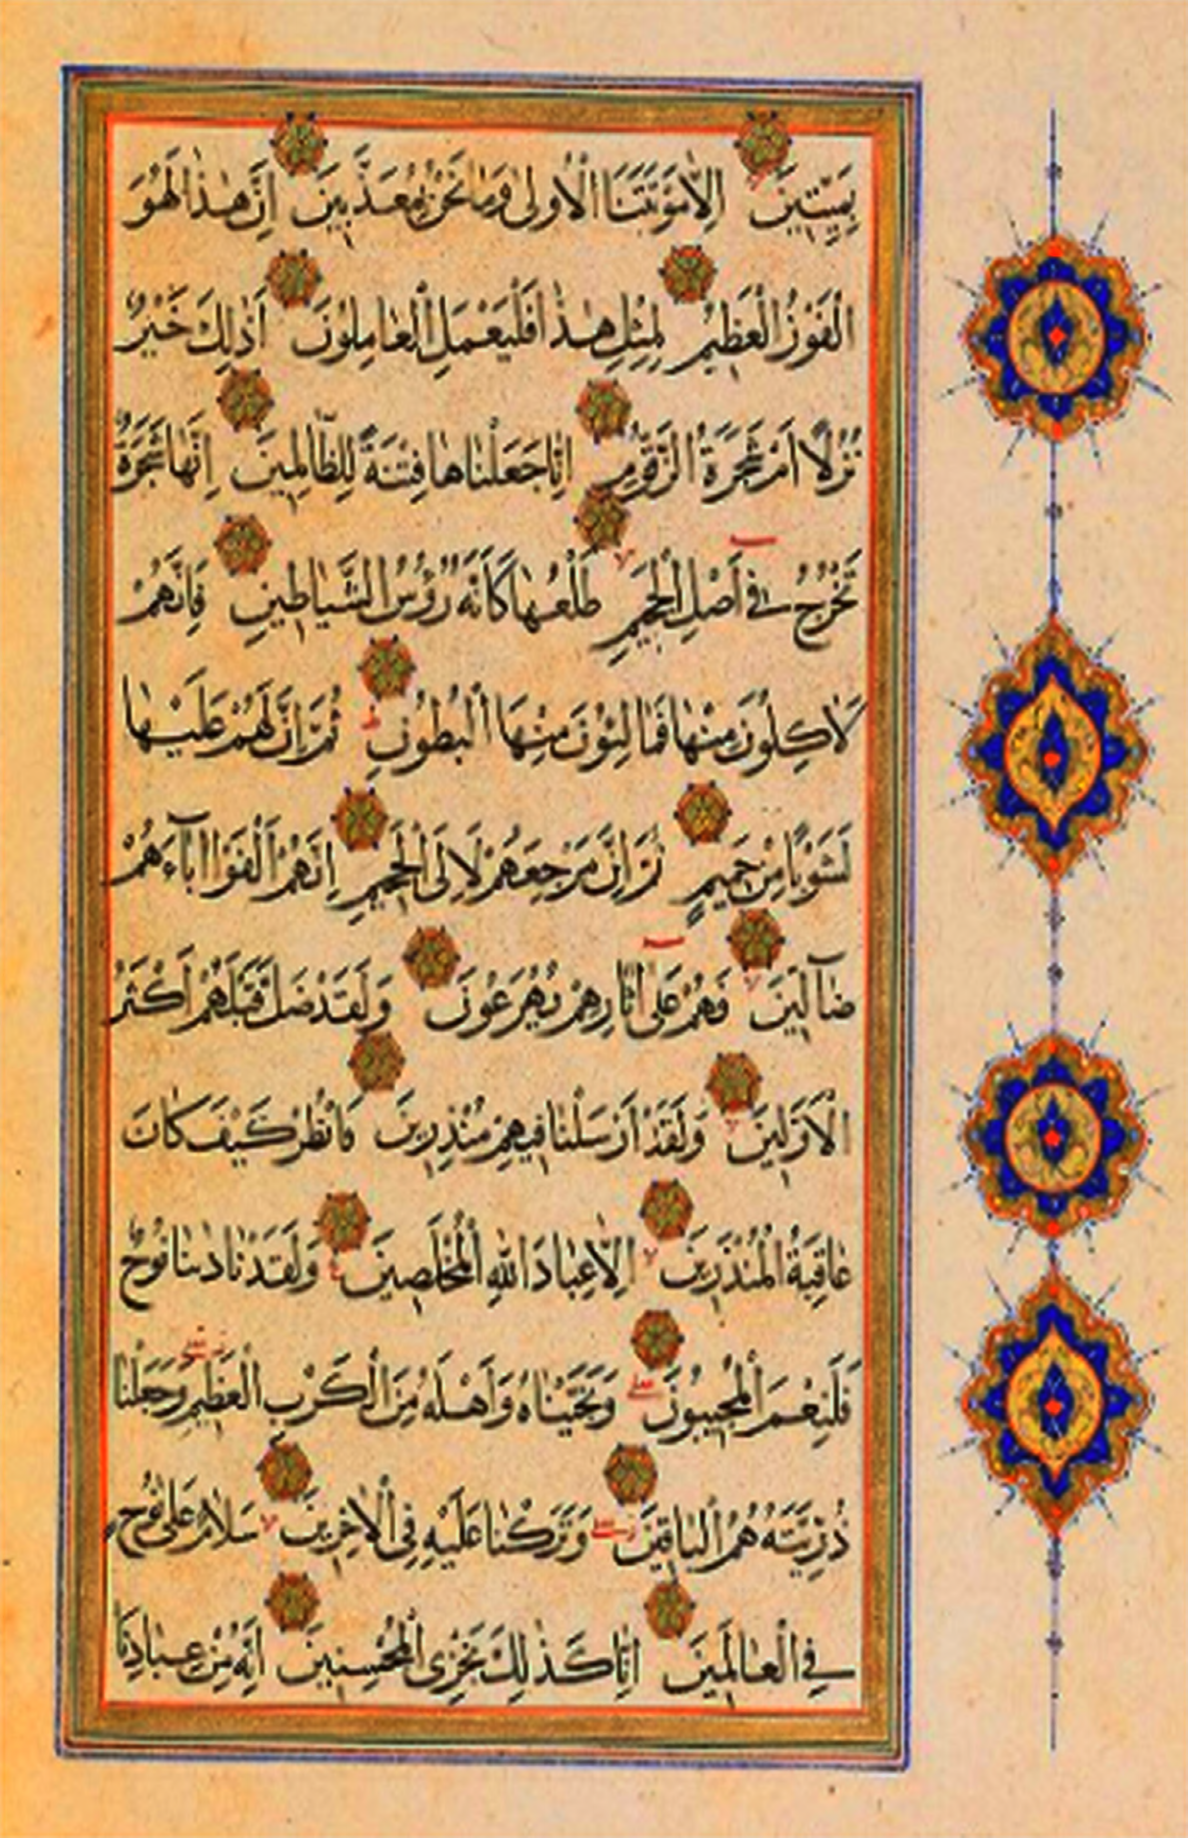 بِمَيِّتِينَ اِلَّا مَوْتَتَنَا الْاُولٰى وَمَا نَحْنُ بِمُعَذَّبِينَ اِنَّ هٰذَا لَهُوَ
الْفَوْزُ الْعَظِيمُ لِمِثْلِ هٰذَا فَلْيَعْمَلِ الْعَامِلُونَ اَذٰلِكَ خَيْرٌ
نُزُلًا اَمْ شَجَرَةُ الزَّقُّومِ اِنَّا جَعَلْنَاهَا فِتْنَةً لِلظَّالِمِينَ اِنَّهَا شَجَرَةٌ
تَخْرُجُ فِى اَصْلِ الْجَحِيمِ طَلْعُهَا كَاَنَّهُ رُؤُسُ الشَّيَاطِينِ فَاِنَّهُمْ
لَاٰكِلُونَ مِنْهَا فَمَالِئُونَ مِنْهَا الْبُطُونَ ثُمَّ اِنَّ لَهُمْ عَلَيْهَا
لَشَوْبًا مِنْ حَمِيمٍ ثُمَّ اِنَّ مَرْجِعَهُمْ لَاِلَى الْجَحِيمِ اِنَّهُمْ اَلْفَوْا اٰبَآءَهُمْ
ضَآلِّينَ فَهُمْ عَلٰٓى اٰثَارِهِمْ يُهْرَعُونَ وَلَقَدْ ضَلَّ قَبْلَهُمْ اَكْثَرُ
الْاَوَّلِينَ وَلَقَدْ اَرْسَلْنَا فِيهِمْ مُنْذِرِينَ فَانْظُرْ كَيْفَ كَانَ
عَاقِبَةُ الْمُنْذَرِينَ اِلَّا عِبَادَ اللّٰهِ الْمُخْلَصِينَ وَلَقَدْ نَادٰينَا نُوحٌ
فَلَنِعْمَ الْمُجِيبُونَ وَنَجَّيْنَاهُ وَاَهْلَهُ مِنَ الْكَرْبِ الْعَظِيمِ وَجَعَلْنَا
ذُرِّيَّتَهُ هُمُ الْبَاقِينَ وَتَرَكْنَا عَلَيْهِ فِى الْاٰخِرِينَ سَلَامٌ عَلٰى نُوحٍ
فِى الْعَالَمِينَ اِنَّا كَذٰلِكَ نَجْزِى الْمُحْسِنِينَ اِنَّهُ مِنْ عِبَادِنَا